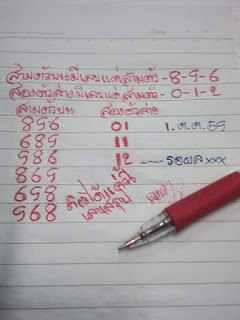 สามตัวบนมีเลขแค่สามตัว-8-9-6
สองตัวล่างมีเลขแค่สามตัว-0-1-2
สามตัวบน สองตัวล่าง
896 01 1.ต.ค.59
689 11
986 12 ----รอผลxxx
869
698
968